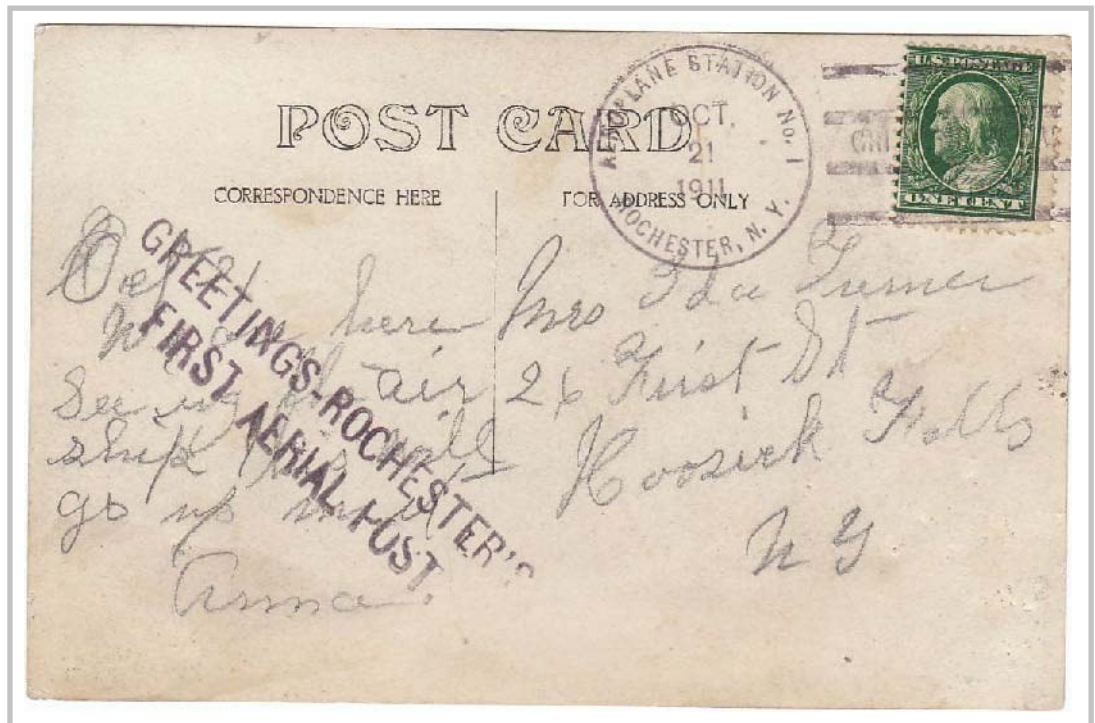 POST CARD
CORRESPONDENCE HERE
FOR ADDRESS ONLY
AEROPLANE STATION No. 1
OCT.
21
1911
ROCHESTER, N. Y.
U.S. POSTAGE
ONE CENT
GREETINGS-ROCHESTER'S
FIRST AERIAL POST
Oct 21
here
Seeing air
ship this
go up
Anna
Mrs Ida Turner
26 First St
Hoosick Falls
N Y